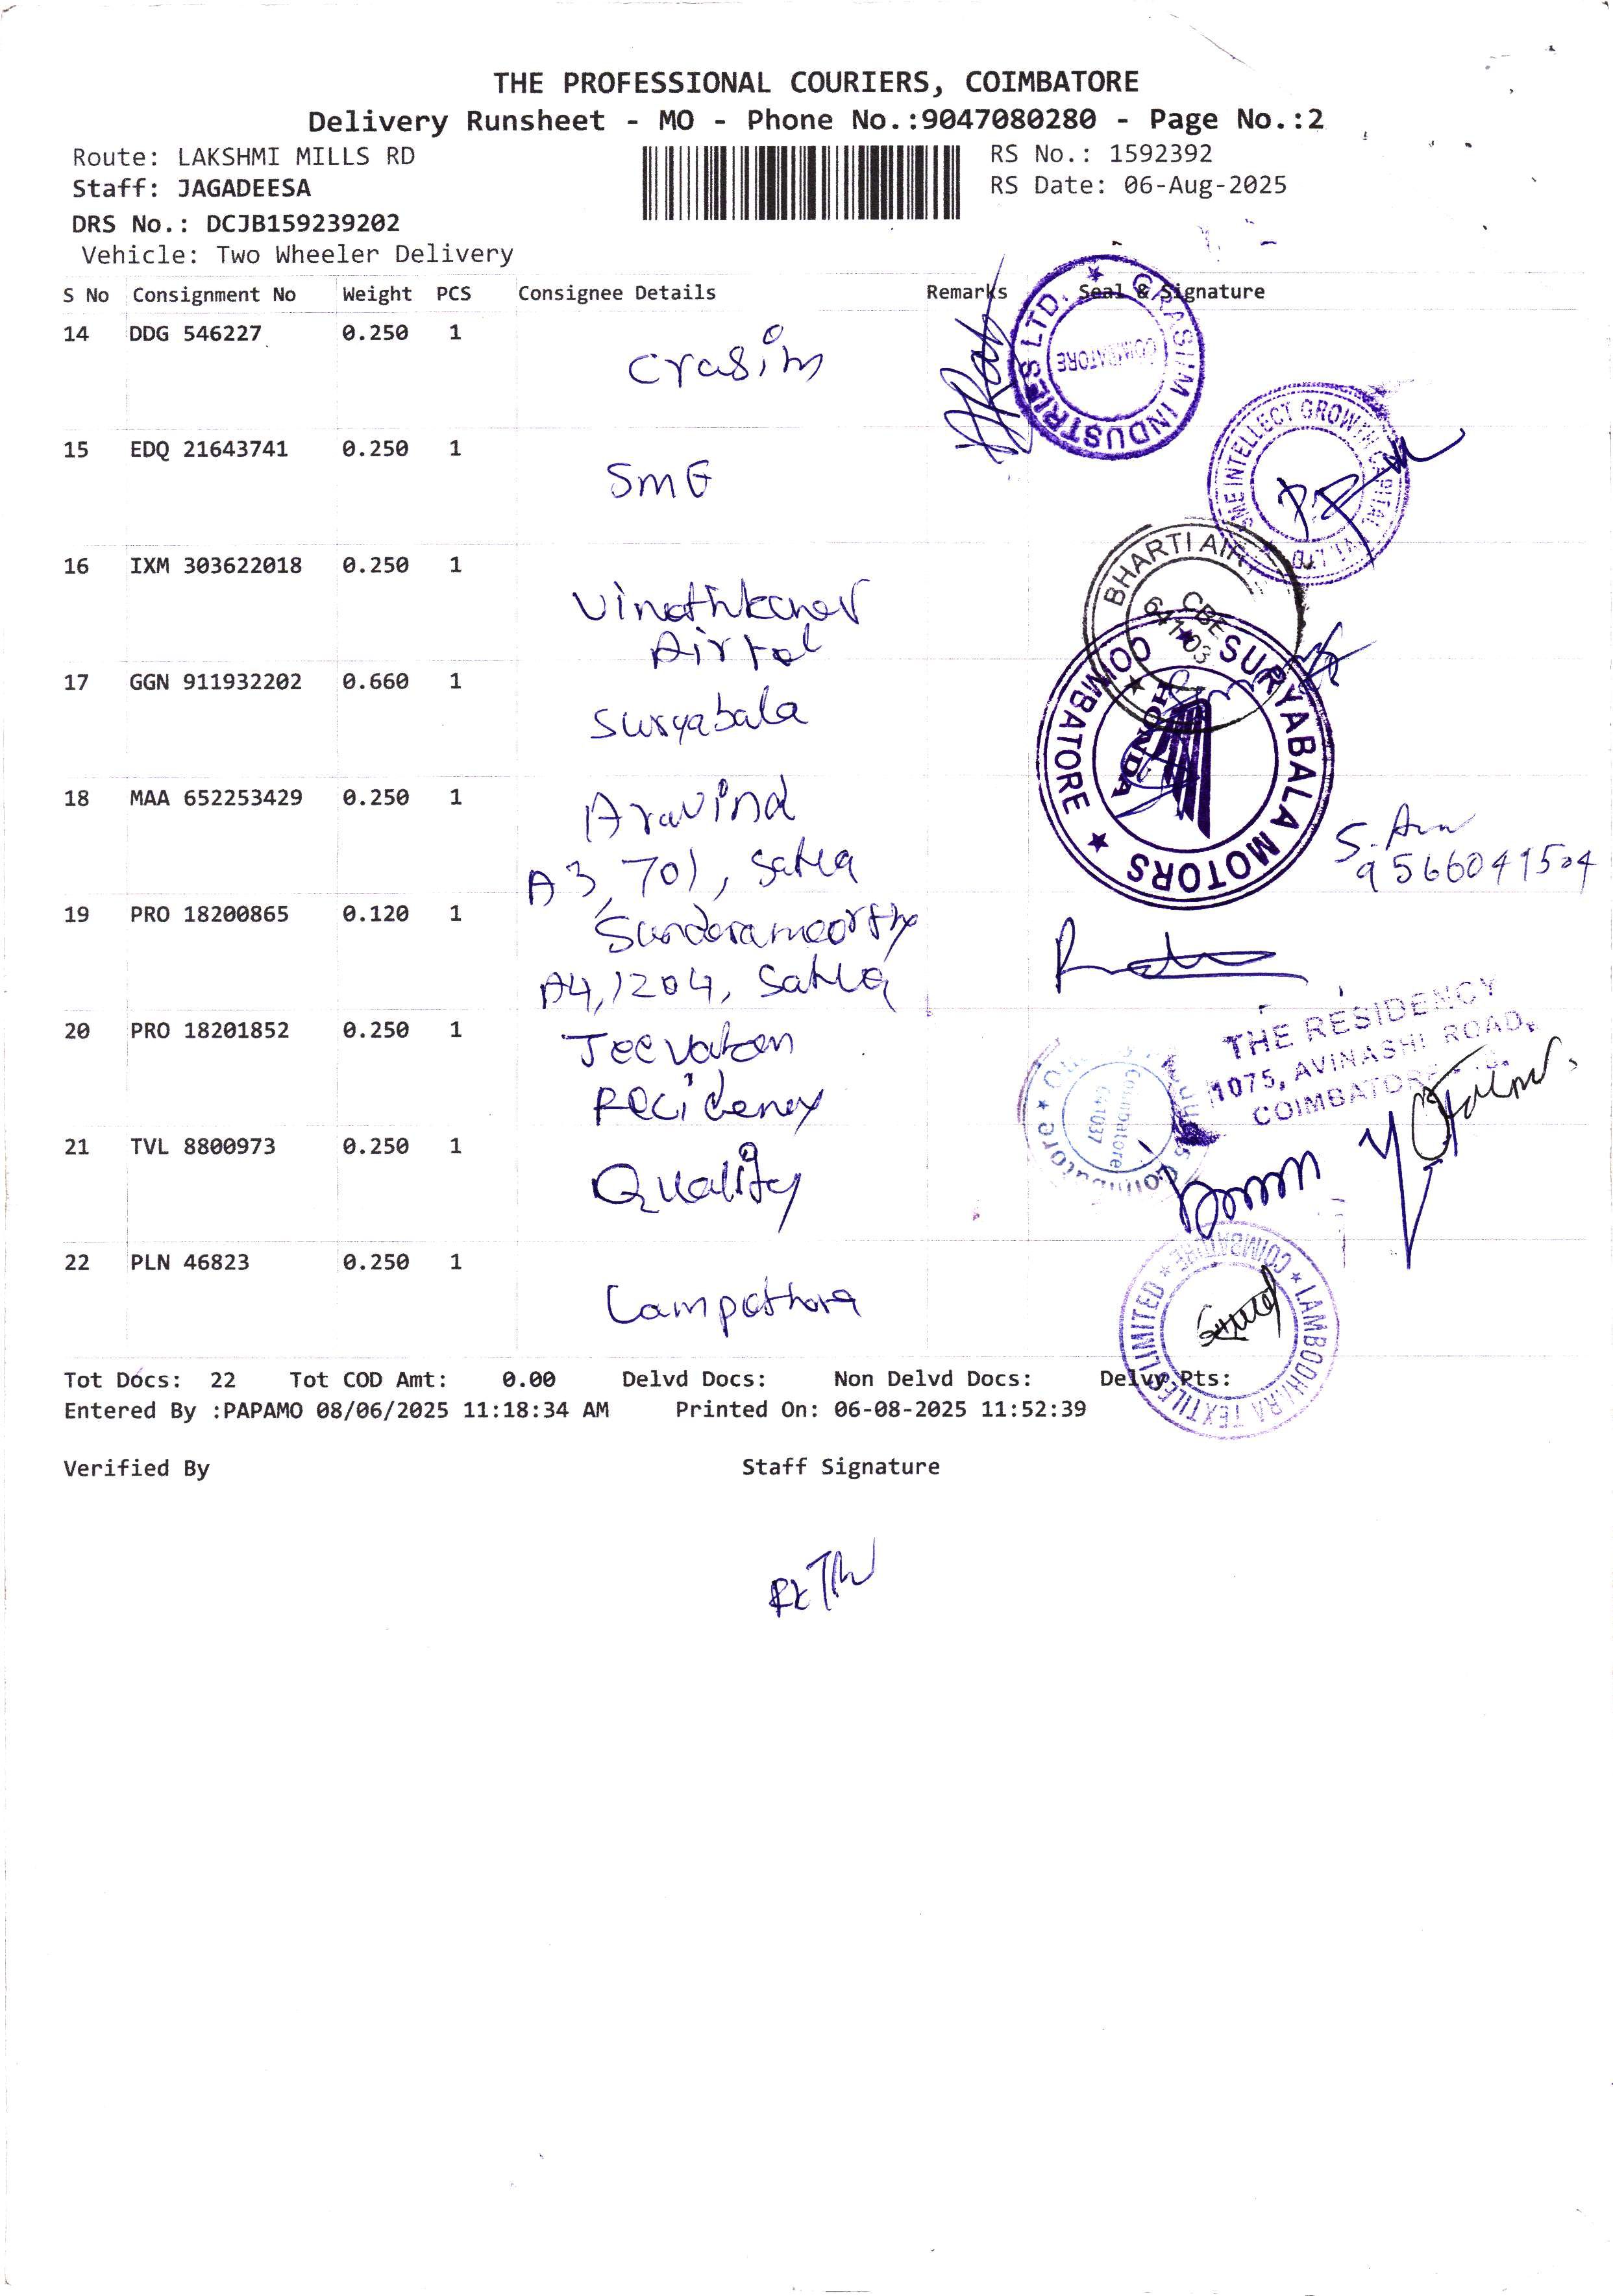 THE PROFESSIONAL COURIERS, COIMBATORE
Delivery Runsheet - MO - Phone No.:9047080280 - Page No.:2
Route: LAKSHMI MILLS RD
RS No.: 1592392
Staff: JAGADEESA
RS Date: 06-Aug-2025
DRS No.: DCJB159239202
Vehicle: Two Wheeler Delivery
S No Consignment No Weight PCS Consignee Details Remarks Seal & Signature
14 DDG 546227 0.250 1 Crasim
GRASIM INDUSTRIES LTD.
COIMBATORE
15 EDQ 21643741 0.250 1 SmE
SME INTELLECT GROWTH CAPITAL
16 IXM 303622018 0.250 1
Airtel
BHARTI AIRTEL
CBE
17 GGN 911932202 0.660 1 Suryabala
SURYABALA MOTORS
COIMBATORE
HONDA
18 MAA 652253429 0.250 1 Aravind
A3, 701, Satha
9566041504
19 PRO 18200865 0.120 1 Sundaramoorthy
A4, 1204, Satha
20 PRO 18201852 0.250 1
THE RESIDENCY
1075, AVINASHI ROAD,
COIMBATORE
Coimbatore
641037
21 TVL 8800973 0.250 1 Quality
22 PLN 46823 0.250 1
TEXTILES LIMITED
COIMBATORE
Tot Docs: 22 Tot COD Amt: 0.00 Delvd Docs: Non Delvd Docs: Delvy Pts:
Entered By :PAPAMO 08/06/2025 11:18:34 AM Printed On: 06-08-2025 11:52:39
Verified By Staff Signature